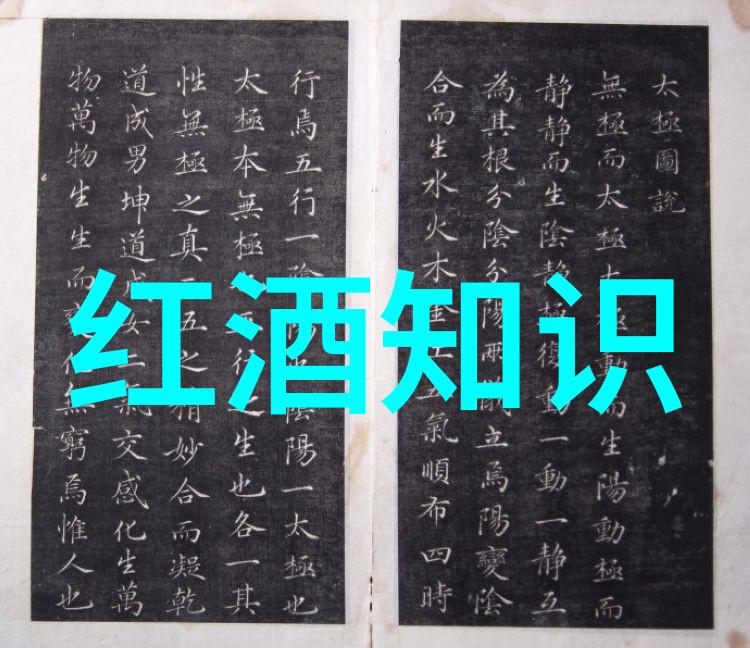 太極圖說
無極而太極太極動而生陽動極而
静静而生陰静極復動一動一静互
為其根分陰分陽兩儀立焉陽變陰
合而生水火木金土五氣順布四時
行焉五行一陰陽也陰陽一太極也
太極本無極也五行之生也各一其
性無極之真二五之精妙合而凝乾
道成男坤道成女二氣交感化生萬
物萬物生生而變化無窮焉惟人也
红酒知识